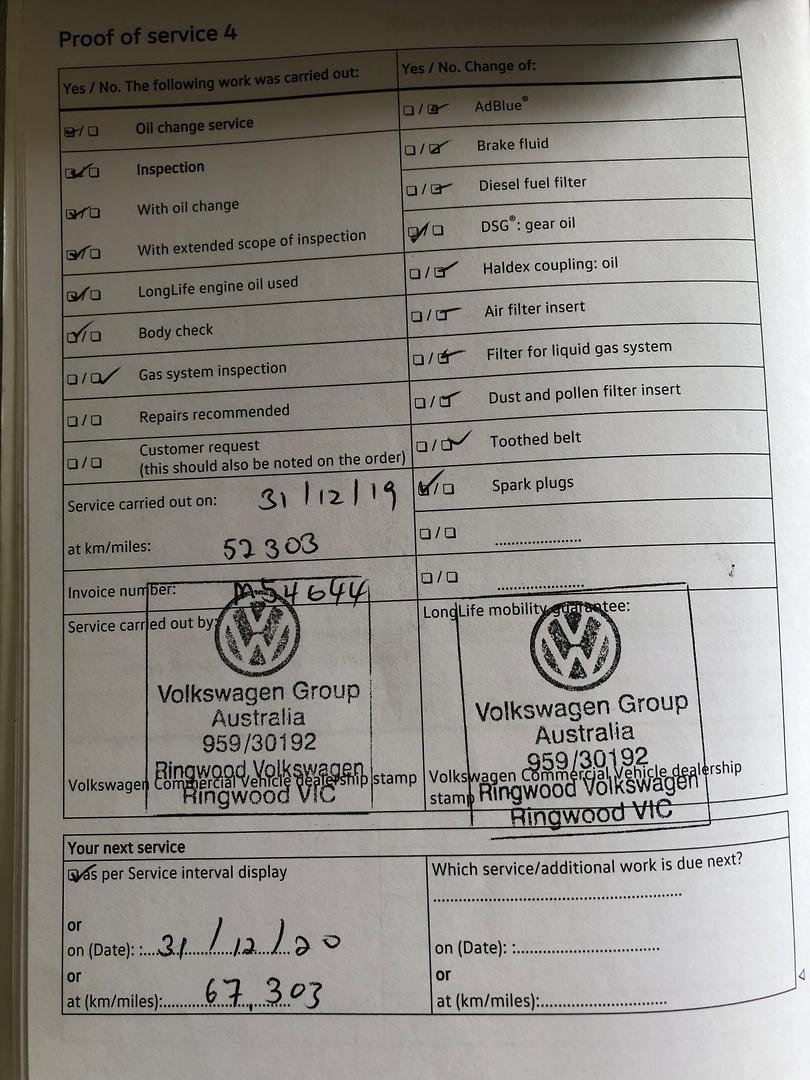 Proof of service 4
Yes / No. The following work was carried out:
☑/☐ Oil change service
☑/☐ Inspection
☑/☐ With oil change
☑/☐ With extended scope of inspection
☑/☐ LongLife engine oil used
☑/☐ Body check
☐/☑ Gas system inspection
☐/☐ Repairs recommended
☐/☐ Customer request
(this should also be noted on the order)
Service carried out on: 31/12/19
at km/miles: 52303
Invoice number: M54644
Service carried out by:
Volkswagen Group
Australia
959/30192
Ringwood Volkswagen
Ringwood VIC
Volkswagen Commercial Vehicle dealership stamp
Yes / No. Change of:
☐/☑ AdBlue®
☐/☑ Brake fluid
☐/☑ Diesel fuel filter
☑/☐ DSG®: gear oil
☐/☑ Haldex coupling: oil
☐/☑ Air filter insert
☐/☑ Filter for liquid gas system
☐/☑ Dust and pollen filter insert
☐/☑ Toothed belt
☑/☐ Spark plugs
☐/☐ .....................
☐/☐ .....................
LongLife mobility guarantee:
Volkswagen Group
Australia
959/30192
Ringwood Volkswagen
Ringwood VIC
Volkswagen Commercial Vehicle dealership
stamp
Your next service
☑ as per Service interval display
or
on (Date): :...31/12/20
or
at (km/miles):......67,303
Which service/additional work is due next?
............................................................
on (Date): :...................................
or
at (km/miles):..............................